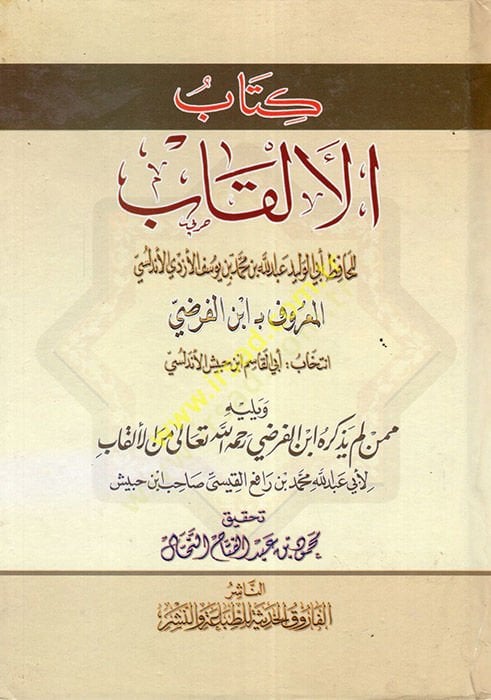 كتاب
الألقاب
للحافظ أبي الوليد عبد الله بن محمد بن يوسف الأزدي الأندلسي
المعروف بـ ابن الفرضي
انتخاب: أبي القاسم ابن حبيش الأندلسي
ويليه
ممن لم يذكره ابن الفرضي رحمه الله تعالى من الألقاب
لأبي عبد الله محمد بن رافع القيسي صاحب ابن حبيش
تحقيق
محمود بن عبد الفتاح النحال
الناشر
الفاروق الحديثة للطباعة والنشر